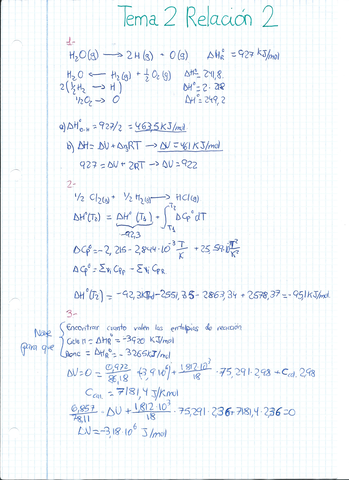 Tema 2 Relación 2
1-
H₂O(g) → 2H(g) + O(g) ΔHR° = 927 KJ/mol
H₂O ← H₂(g) + ½O₂(g) ΔH° = 241,8
2(½H₂ → H) ΔH° = 2·218
½O₂ → O ΔH° = 249,2
a) ΔH°O-H = 927/2 = 463,5 KJ/mol
b) ΔH = ΔU + ΔnRT → ΔU = 461 KJ/mol
927 = ΔU + 2RT → ΔU = 922
2-
½ Cl₂(g) + ½ H₂(g) → HCl(g)
ΔH°(T₂) = ΔH°(T₁) + ∫T₁T₂ ΔCp° dT
-92,3
ΔCp° = -2,215 - 2,844·10⁻³ T/K + 25,5 T²/K²
ΔCp° = Σνi CPP - Σνi CPR
ΔH°(T₂) = -92,3 - 2551,35 - 2867,34 + 2578,37 = -95,1 KJ/mol
3-
para que Encontrar cuanto valen las entalpias de reacción
= ΔHR° = -3920 KJ/mol
= ΔHR° = -3265 KJ/mol
ΔU = 0 = 0,972/86,18 (-3,9·10⁶) + 1,812·10³/18 · 75,291·2,98 + Ccal 2,98
Ccal = 7181,4 J/Kmol
0,857/78,11 · ΔU + 1,812·10³/18 · 75,291·2,36 + 7181,4·2,36 = 0
ΔU = -3,18·10⁶ J/mol